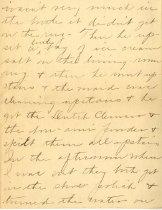 wasn't very much in
the bowl it didn't get
on the rug. Then he up-
set a bag of ice cream
salt on the living room
rug & then he went up
stairs & the maid was
cleaning upstairs & he
got the Dutch Cleanser &
the powder &
spilt them all upstairs
In the afternoon when
I was out they both got
on the porch &
turned the water on